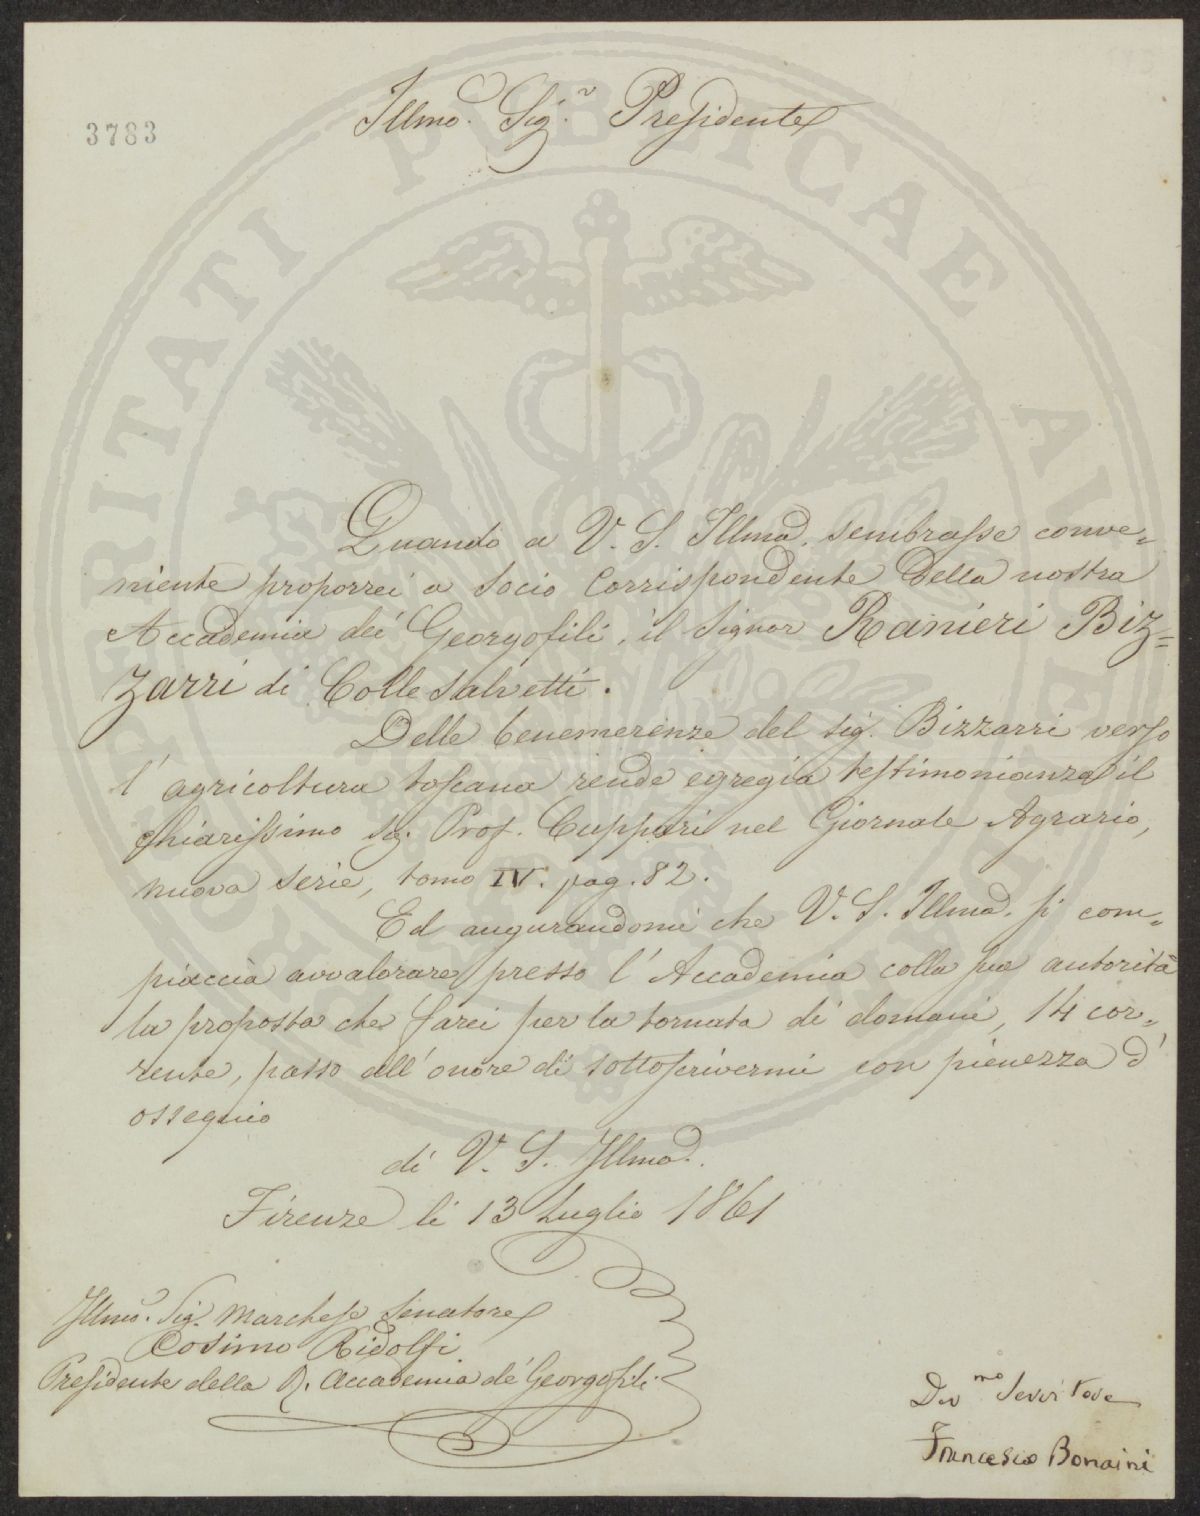 3783
Illmo. Sigr. Presidente
Quando a V. S. Illma. sembrasse conve=
niente proporrei a Socio Corrispondente della nostra
Accademia dei Georgofili, il Signor Ranieri Biz=
zarri di Colle Salvetti.
Delle benemerenze del sig. Bizzarri verso
l'agricoltura toscana rende egregia testimonianza il
chiarissimo sig. Prof. Cuppari nel Giornale Agrario,
nuova serie, tomo IV. pag. 82.
Ed augurandomi che V. S. Illma. si com=
piaccia avvalorare presso l'Accademia colla sua autorità
la proposta che farei per la tornata di domani, 14 cor=
rente, passo all'onore di sottoscrivermi con pienezza d'
ossequio
di V. S. Illma.
Firenze li 13 Luglio 1861
Illmo. Sigr. Marchese Senatore
Cosimo Ridolfi
Presidente della R. Accademia de' Georgofili.
Devmo Servitore
Francesco Bonaini
PROSPERITATI PUBLICAE AUGENDAE